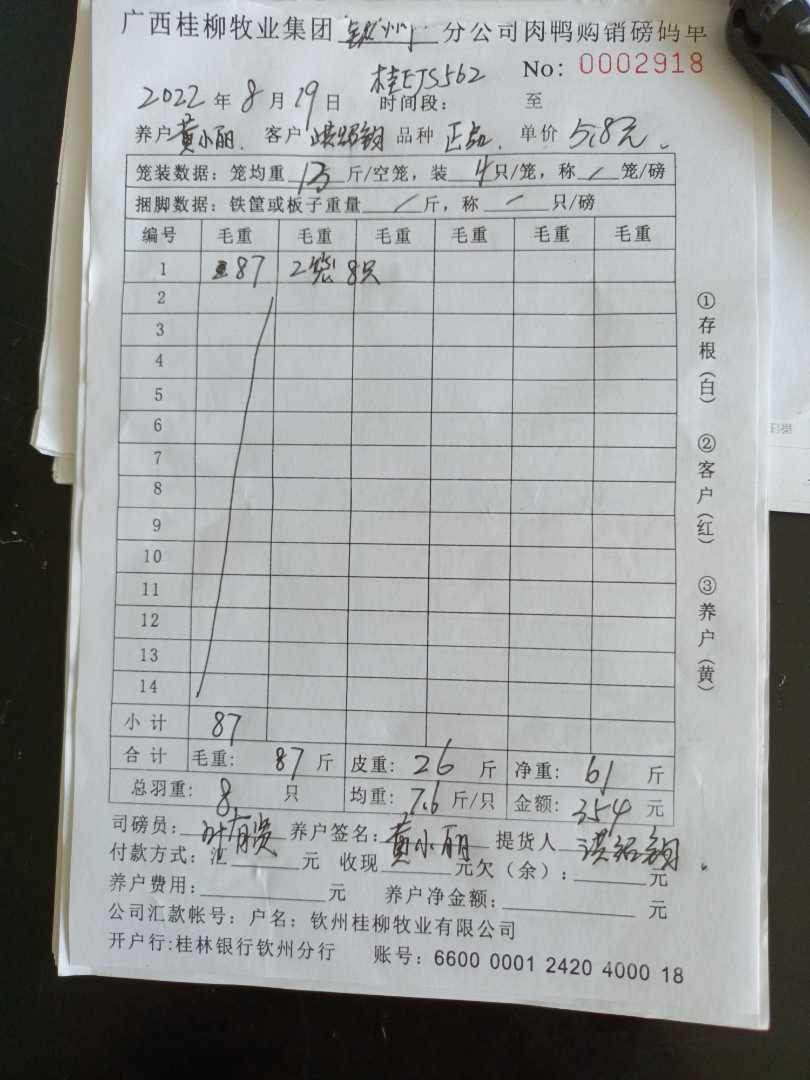 广西桂柳牧业集团 钦州 分公司肉鸭购销磅码单
桂EJS562 No: 0002918
2022 年 8 月 19 日 时间段: 至
养户 黄小丽. 客户 洪绍钧 品种 正品. 单价 5.8元.
笼装数据: 笼均重 13 斤/空笼, 装 4 只/笼, 称 / 笼/磅
捆脚数据: 铁筐或板子重量 / 斤, 称 / 只/磅
编号 毛重 毛重 毛重 毛重 毛重 毛重
1 87 2笼 8只
2
3
4
5
6
7
8
9
10
11
12
13
14
小计 87
合计 毛重: 87 斤 皮重: 26 斤 净重: 61 斤
总羽重: 8 只 均重: 7.6 斤/只 金额: 354 元
司磅员: 叶有贵 养户签名: 黄小丽 提货人 洪绍钧.
付款方式: 汇 元 收现 元欠(余): 元
养户费用: 元 养户净金额: 元
公司汇款帐号: 户名: 钦州桂柳牧业有限公司
开户行:桂林银行钦州分行 账号: 6600 0001 2420 4000 18
①存根(白) ②客户(红) ③养户(黄)